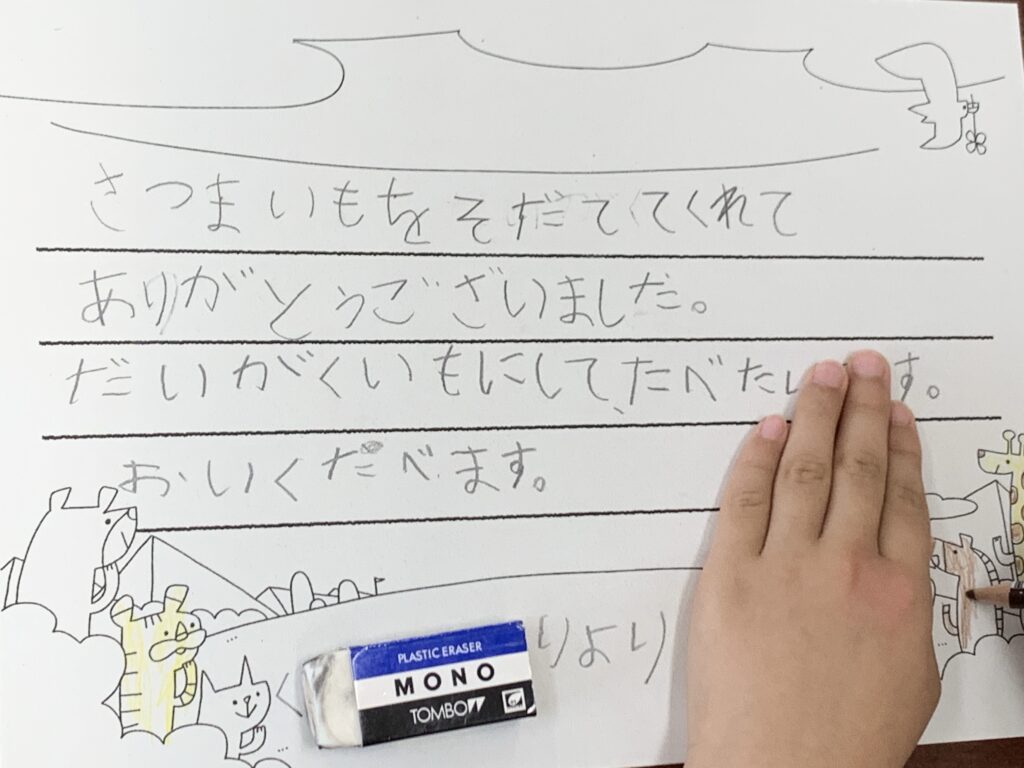 さつまいもをそだててくれて
ありがとうございましだ。
だいがくいもにして、たべたい す。
おいくたべます。
りより
PLASTIC ERASER
MONO
TOMBOW